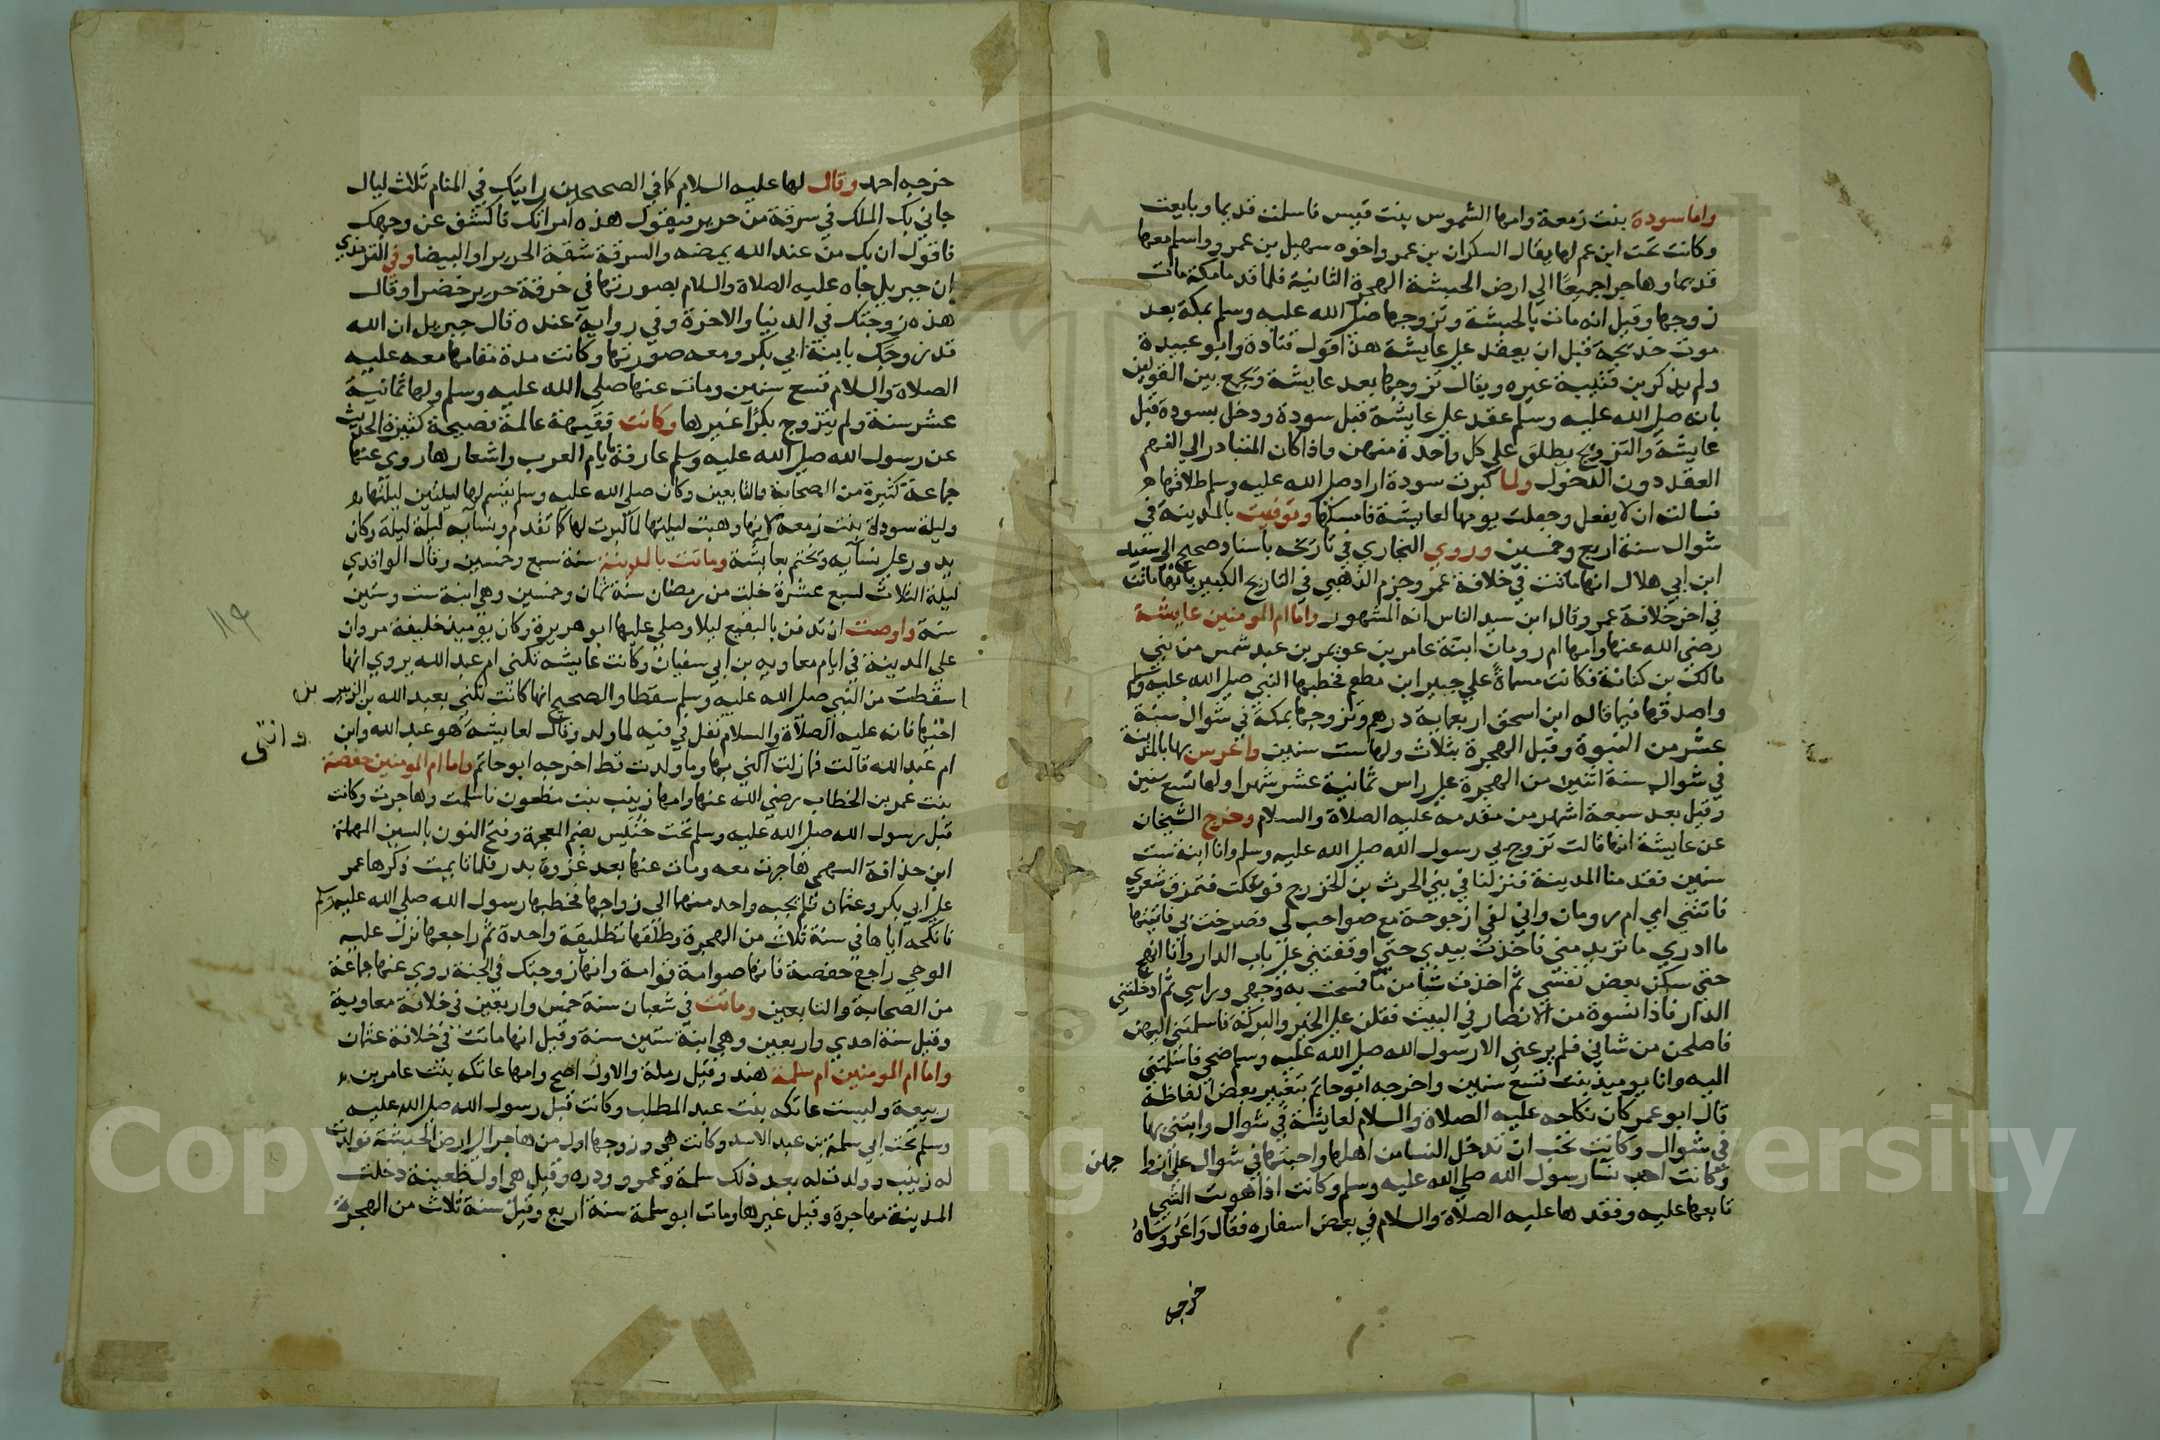 واما سودة بنت زمعة وامها الشموس بنت قيس فاسلمت قديما وبايعت
وكانت تحت ابن عم لها يقال السكران بن عمرو اخوه سهيل بن عمرو واسلم معها
قديما وهاجرا جميعا الي ارض الحبشة الهجرة الثانية فلما قدما مكة مات
زوجها وقيل انه مات بالحبشة وتزوجها صلي الله عليه وسلم بمكة بعد
موت خديجة قبل ان يعقد علي عايشة هذا قول قتادة وابو عبيدة
ولم يذكر بن قتيبة غيره ويقال تزوجها بعد عايشة ويجمع بين القولين
بانه صلي الله عليه وسلم عقد علي عايشة قبل سودة ودخل بسودة قبل
عايشة والتزويج يطلق علي كل واحدة منهن واذا كان المتبادر الي الفهم
العقد دون الدخول ولما كبرت سودة اراد صلي الله عليه وسلم طلاقها
فسالته ان لا يفعل وجعلت يومها لعايشة فامسكها وتوفيت بالمدينة في
شوال سنة اربع وخمسين وروي البخاري في تاريخه باسناد صحيح الي سعيد
ابن ابي هلال انها ماتت في خلافة عمر وجزم الذهبي في التاريخ الكبير بانها ماتت
في اخر خلافة عمر وقال ابن سيد الناس انه المشهور واما ام المومنين عايشة
رضي الله عنها وامها ام رومان ابنة عامر بن عويمر بن عبد شمس من بني
مالك بن كنانة فكانت مسماة علي جبير ابن مطعم فخطبها النبي صلي الله عليه وسلم
واصدقها فيما قاله ابن اسحق اربعماية درهم وتزوجها بمكة في شوال سنة
عشر من النبوة وقيل الهجرة بثلاث ولها ست سنين واعرس بها بالمدينة
في شوال سنة اثنين من الهجرة علي راس ثمانية عشر شهرا ولها تسع سنين
وقيل بعد سبعة اشهر من مقدمه عليه الصلاة والسلام وخرج الشيخان
عن عايشة انها قالت تزوجني رسول الله صلي الله عليه وسلم وانا ابنة ست
سنين فقدمنا المدينة فنزلنا في بني الحرث بن الخزرج فوعكت فتمزق شعري
فاتتني امي ام رومان واني لفي ارجوحة مع صواحب لي فصرخت بي فاتيتها
ما ادري ما تريد مني فاخذت بيدي حتي اوقفتني علي باب الدار وانا انهج
حتي سكن بعض نفسي ثم اخذت شيا من ما فمسحت به وجهي وراسي ثم ادخلتني
الدار فاذا نسوة من الانصار في البيت فقلن علي الخير والبركة فاسلمتني اليهن
فاصلحن من شاني فلم يرعني الا رسول الله صلي الله عليه وسلم ضحي فاسلمنني
اليه وانا يوميذ بنت تسع سنين واخرجه ابو حاتم بتغيير بعض الفاظه
قال ابو عمر كان نكاحه عليه الصلاة والسلام لعايشة في شوال وابتني بها
في شوال وكانت تحب ان تدخل النسا من اهلها واحبتها في شوال علي ازوا جهن
وكانت احب نسا رسول الله صلي الله عليه وسلم وكانت اذا هويت الشي
تابعها عليه وفقدها عليه الصلاة والسلام في بعض اسفاره فقال واعروساه
خرجه
خرجه احمد وقال لها عليه السلام كما في الصحيحين رايتك في المنام ثلاث ليال
جاني بك الملك في سرقة من حرير فيقول هذه امراتك فاكشف عن وجهك
فاقول ان يك من عند الله يمضه والسرقة شقة الحرير او البيضا وفي الترمذي
ان جبريل جاه عليه الصلاة والسلام بصورتها في خرقة حرير خضرا وقال
هذه زوجتك في الدنيا والاخرة وفي رواية عنده قال جبريل ان الله
قد زوجك بابنة ابي بكر ومعه صورتها وكانت مدة مقامها معه عليه
الصلاة والسلام تسع سنين ومات عنها صلي الله عليه وسلم ولها ثمانية
عشر سنة ولم يتزوج بكرا غيرها وكانت فقيهة عالمة فصيحة كثيرة الحديث
عن رسول الله صلي الله عليه وسلم عارفة بايام العرب واشعارها روي عنها
جماعة كثيرة من الصحابة والتابعين وكان صلي الله عليه وسلم يقسم لها ليلتين ليلتها
وليلة سودة بنت زمعة لانها وهبت ليلتها لما كبرت لها كما تقدم ونسايه ليلة ليلة وكان
يدور علي نسايه ويختم بعايشة وماتت بالمدينة سنة سبع وخمسين وقال الواقدي
ليلة الثلاث لسبع عشرة خلت من رمضان سنة ثمان وخمسين وهي ابنة ست وستين
سنة واوصت ان تدفن بالبقيع ليلا وصلي عليها ابو هريرة وكان يوميذ خليفة مروان
علي المدينة في ايام معاويه بن ابي سفيان وكانت عايشه تكني ام عبد الله يروي انها
اسقطت من النبي صلي الله عليه وسلم سقطا والصحيح انها كانت تكني بعبد الله بن الزبير بن
اختها فانه عليه الصلاة والسلام تفل في فيه لما ولد وقال لعايشة هو عبد الله وانتي
ام عبد الله قالت فما زلت اكني بها وما ولدت قط اخرجه ابو حاتم واما ام المومنين حفصة
بنت عمر بن الخطاب رضي الله عنها وامها زينب بنت مظعون فاسلمت وهاجرت وكانت
قبل رسول الله صلي الله عليه وسلم تحت خنيس بضم المعجمة وفتح النون بالسين المهملة
ابن حذافة السهمي هاجرت معه ومات عنها بعد غزوة بدر فلما تايمت ذكرها عمر
علي ابي بكر وعثمان فلم يجبه واحد منهما الي زواجها فخطبها رسول الله صلي الله عليه وسلم
فانكحه اياها في سنة ثلاث من الهجرة وطلقها تطليقة واحدة ثم راجعها نزل عليه
الوحي راجع حفصة فانها صوامة قوامة وانها زوجتك في الجنة روي عنها جماعة
من الصحابة والتابعين وماتت في شعبان سنة خمس واربعين في خلافة معاوية
وقيل سنة احدي واربعين وهي ابنة ستين سنة وقيل انها ماتت في خلافة عثمان
واما ام المومنين ام سلمة هند وقيل رملة والاول اصح وامها عاتكه بنت عامر بن
ربيعة وليست عاتكه بنت عبد المطلب وكانت قبل رسول الله صلي الله عليه
وسلم تحت ابي سلمة بن عبد الاسد وكانت هي وزوجها اول من هاجر الي ارض الحبشة فولدت
له زينب وولدت له بعد ذلك سلمة وعمر ودره وقيل هي اول ظعينة دخلت
المدينة مهاجرة وقيل غيرها ومات ابو سلمة سنة اربع وقيل سنة ثلاث من الهجرة